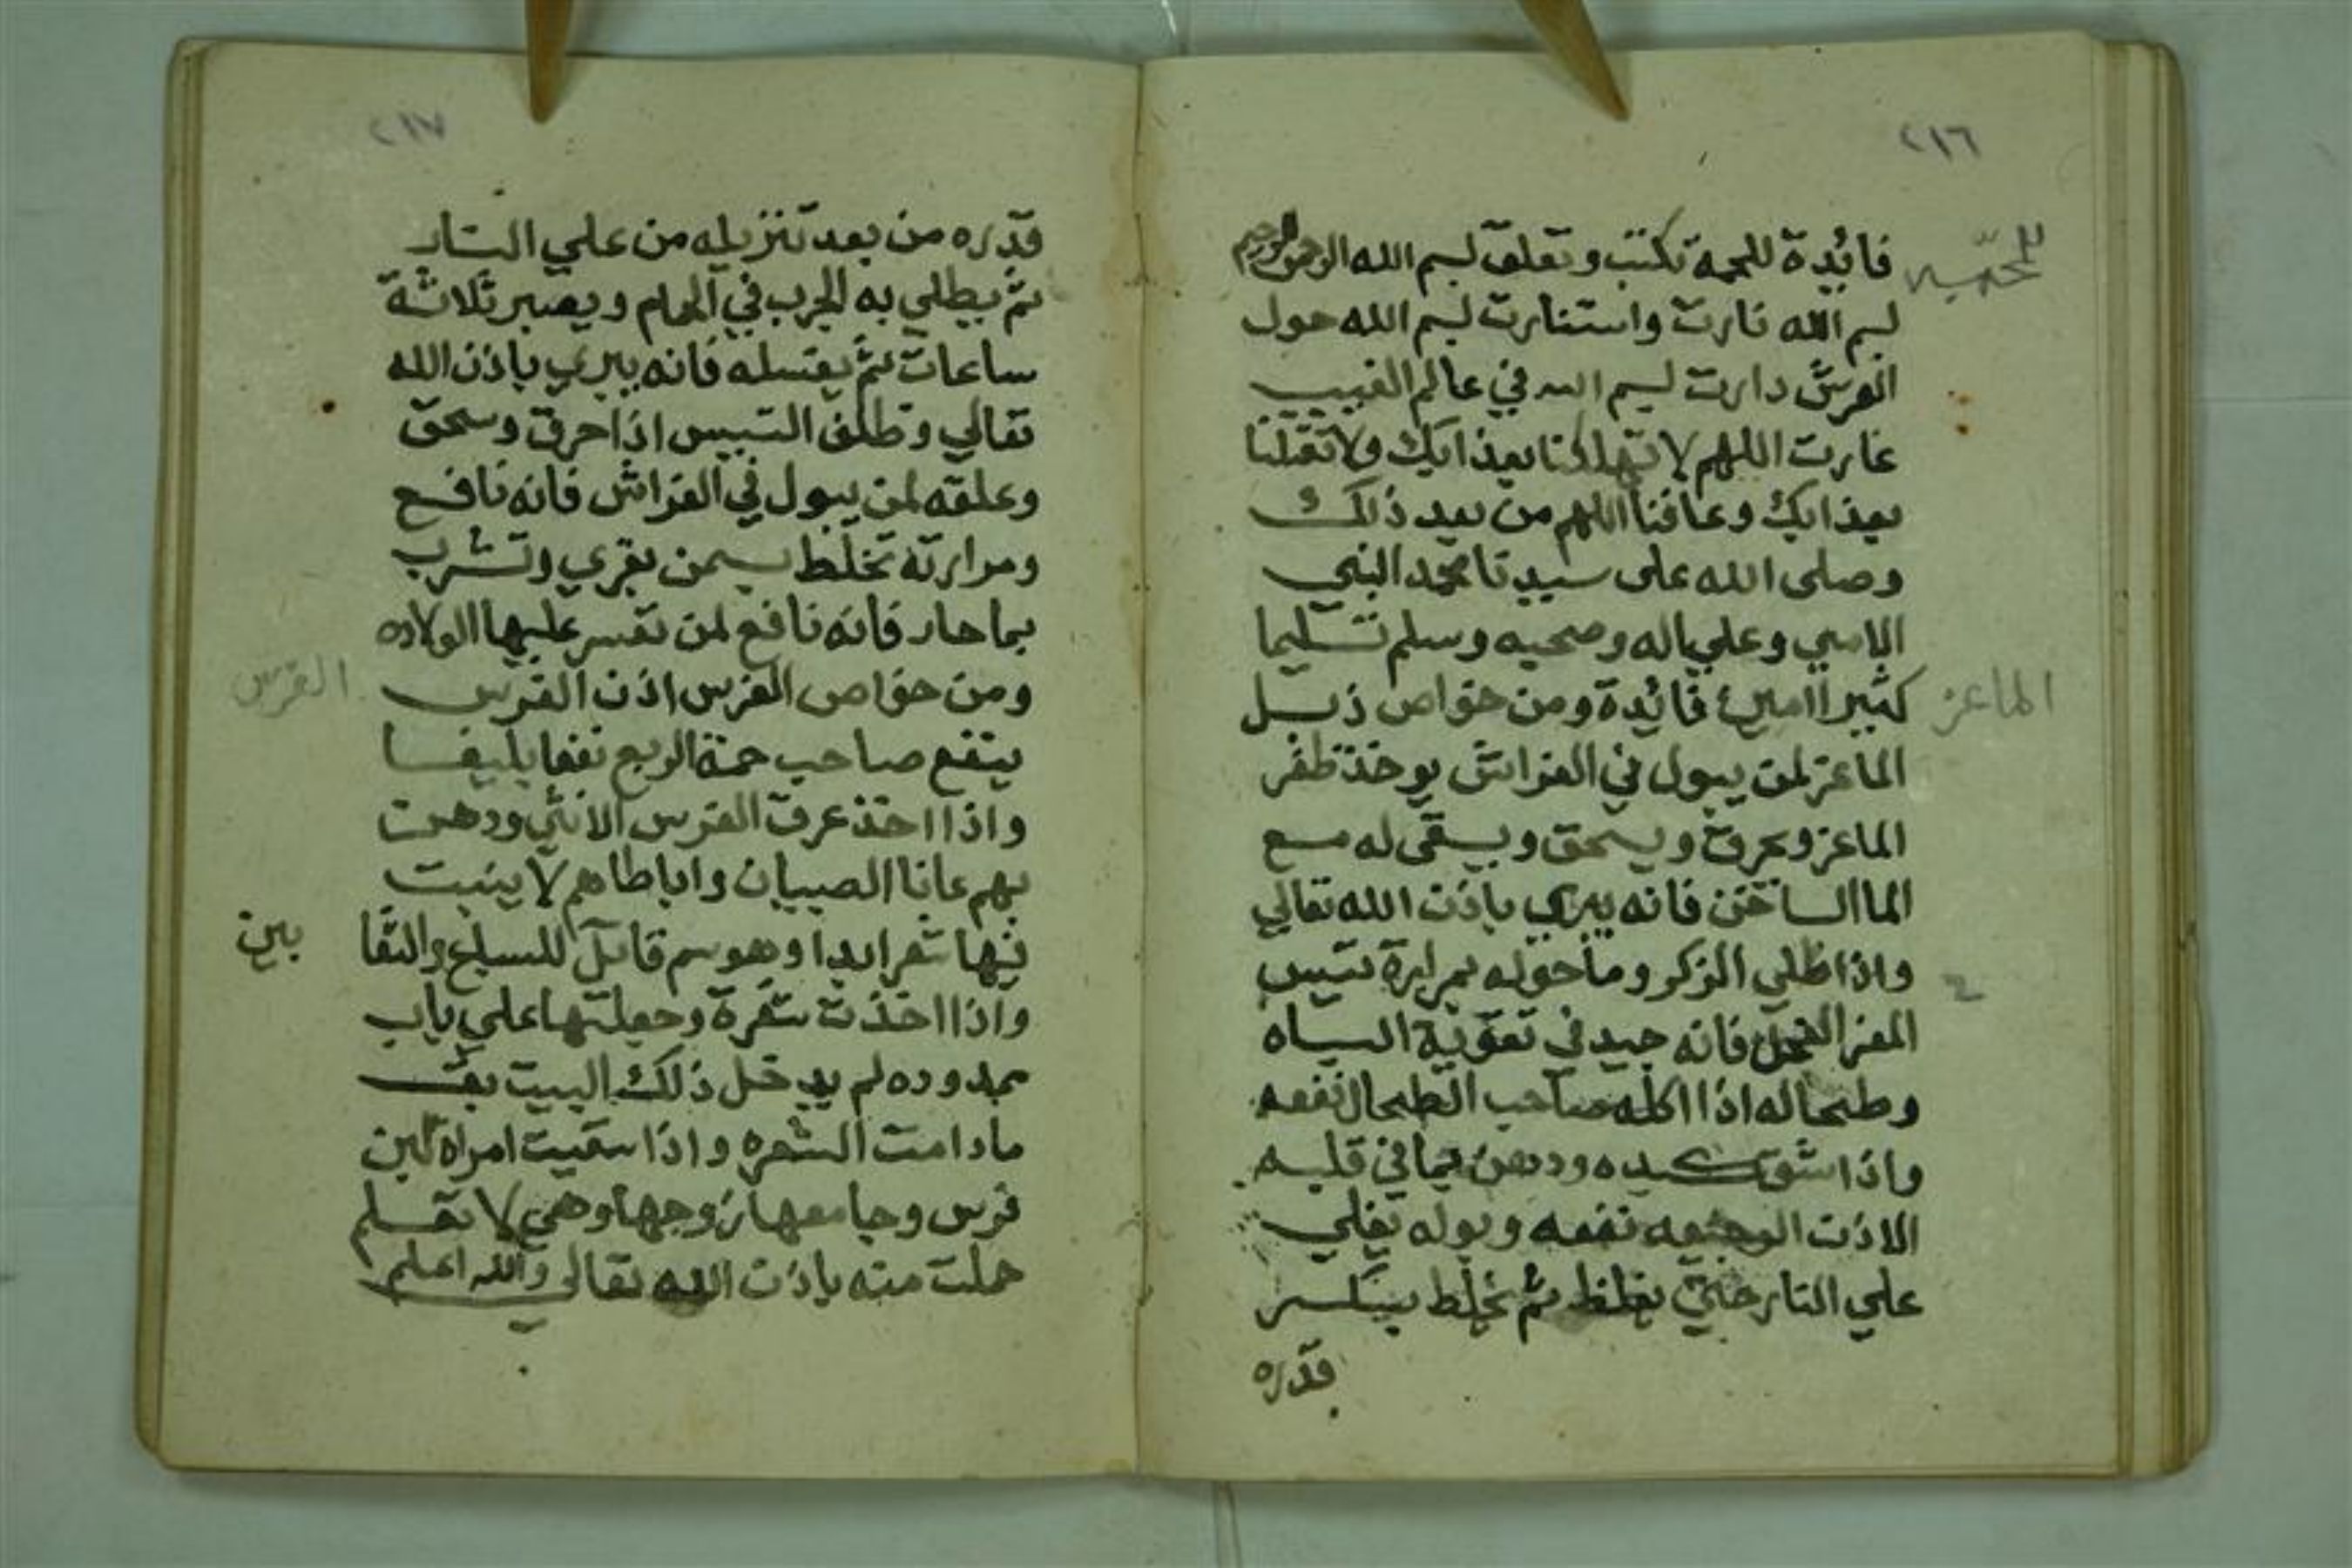 ٢١٦
للحمية
فائدة للحمة تكتب وتعلق بسم الله الرحمن الرحيم
بسم الله نارت واستنارت بسم الله حول
العرش دارت بسم الله في عالم الغيب
غارت اللهم لا تهلكنا بعذابك ولا تقتلنا
بعذابك وعافنا اللهم من بعد ذلك
وصلى الله على سيدنا محمد النبي
الامي وعلي اله وصحبه وسلم تسليما
الماعز
كثيرا امين فائدة ومن خواص ذبل
الماعز لمن يبول في الفراش يوخذ ظفر
الماعز ويحرق ويسحق ويسقى له مع
الما الساخن فانه يبري باذن الله تعالي
واذا طلي الزكر وما حوله بمرارة تيس
المعز الفحل فانه جيد في تقوية الباه
وطحاله اذا اكله صاحب الطحال نفعه
واذا شق كبده ودهن بما في قلبه
الاذن الوجيعه نفعه وبوله يغلي
علي النار حتي يغلظ ثم يخلط بسكر
قدره
٢١٧
قدره من بعد تنزيله من علي النار
ثم يطلي به الجرب في الحمام ويصبر ثلاثة
ساعات ثم يغتسله فانه يبري باذن الله
تعالي وظلف التيس اذا حرق وسحق
وعلقه لمن يبول في الفراش فانه نافع
ومرارته تخلط بسمن بقري وتشرب
بما حار فانه نافع لمن تعسر عليها الولاده
الفرس
ومن خواص الفرس اذن الفرس
ينفع صاحب حمة الربع نفعا بليغا
واذا اخذ عرق الفرس الانثي ودهنت
بهم عانا الصبيان واباطاهم لا ينبت
فيها شعر ابدا وهو سم قاتل للسباع والثعا
بين
واذا اخذت شعرة وجعلتها علي باب
ممدوده لم يدخل ذلك البيت بق
مادامت الشعره واذا سقيت امراة لبن
فرس وجامعها زوجها وهي لا تعلم
حملت منه باذن الله تعالي والله اعلم